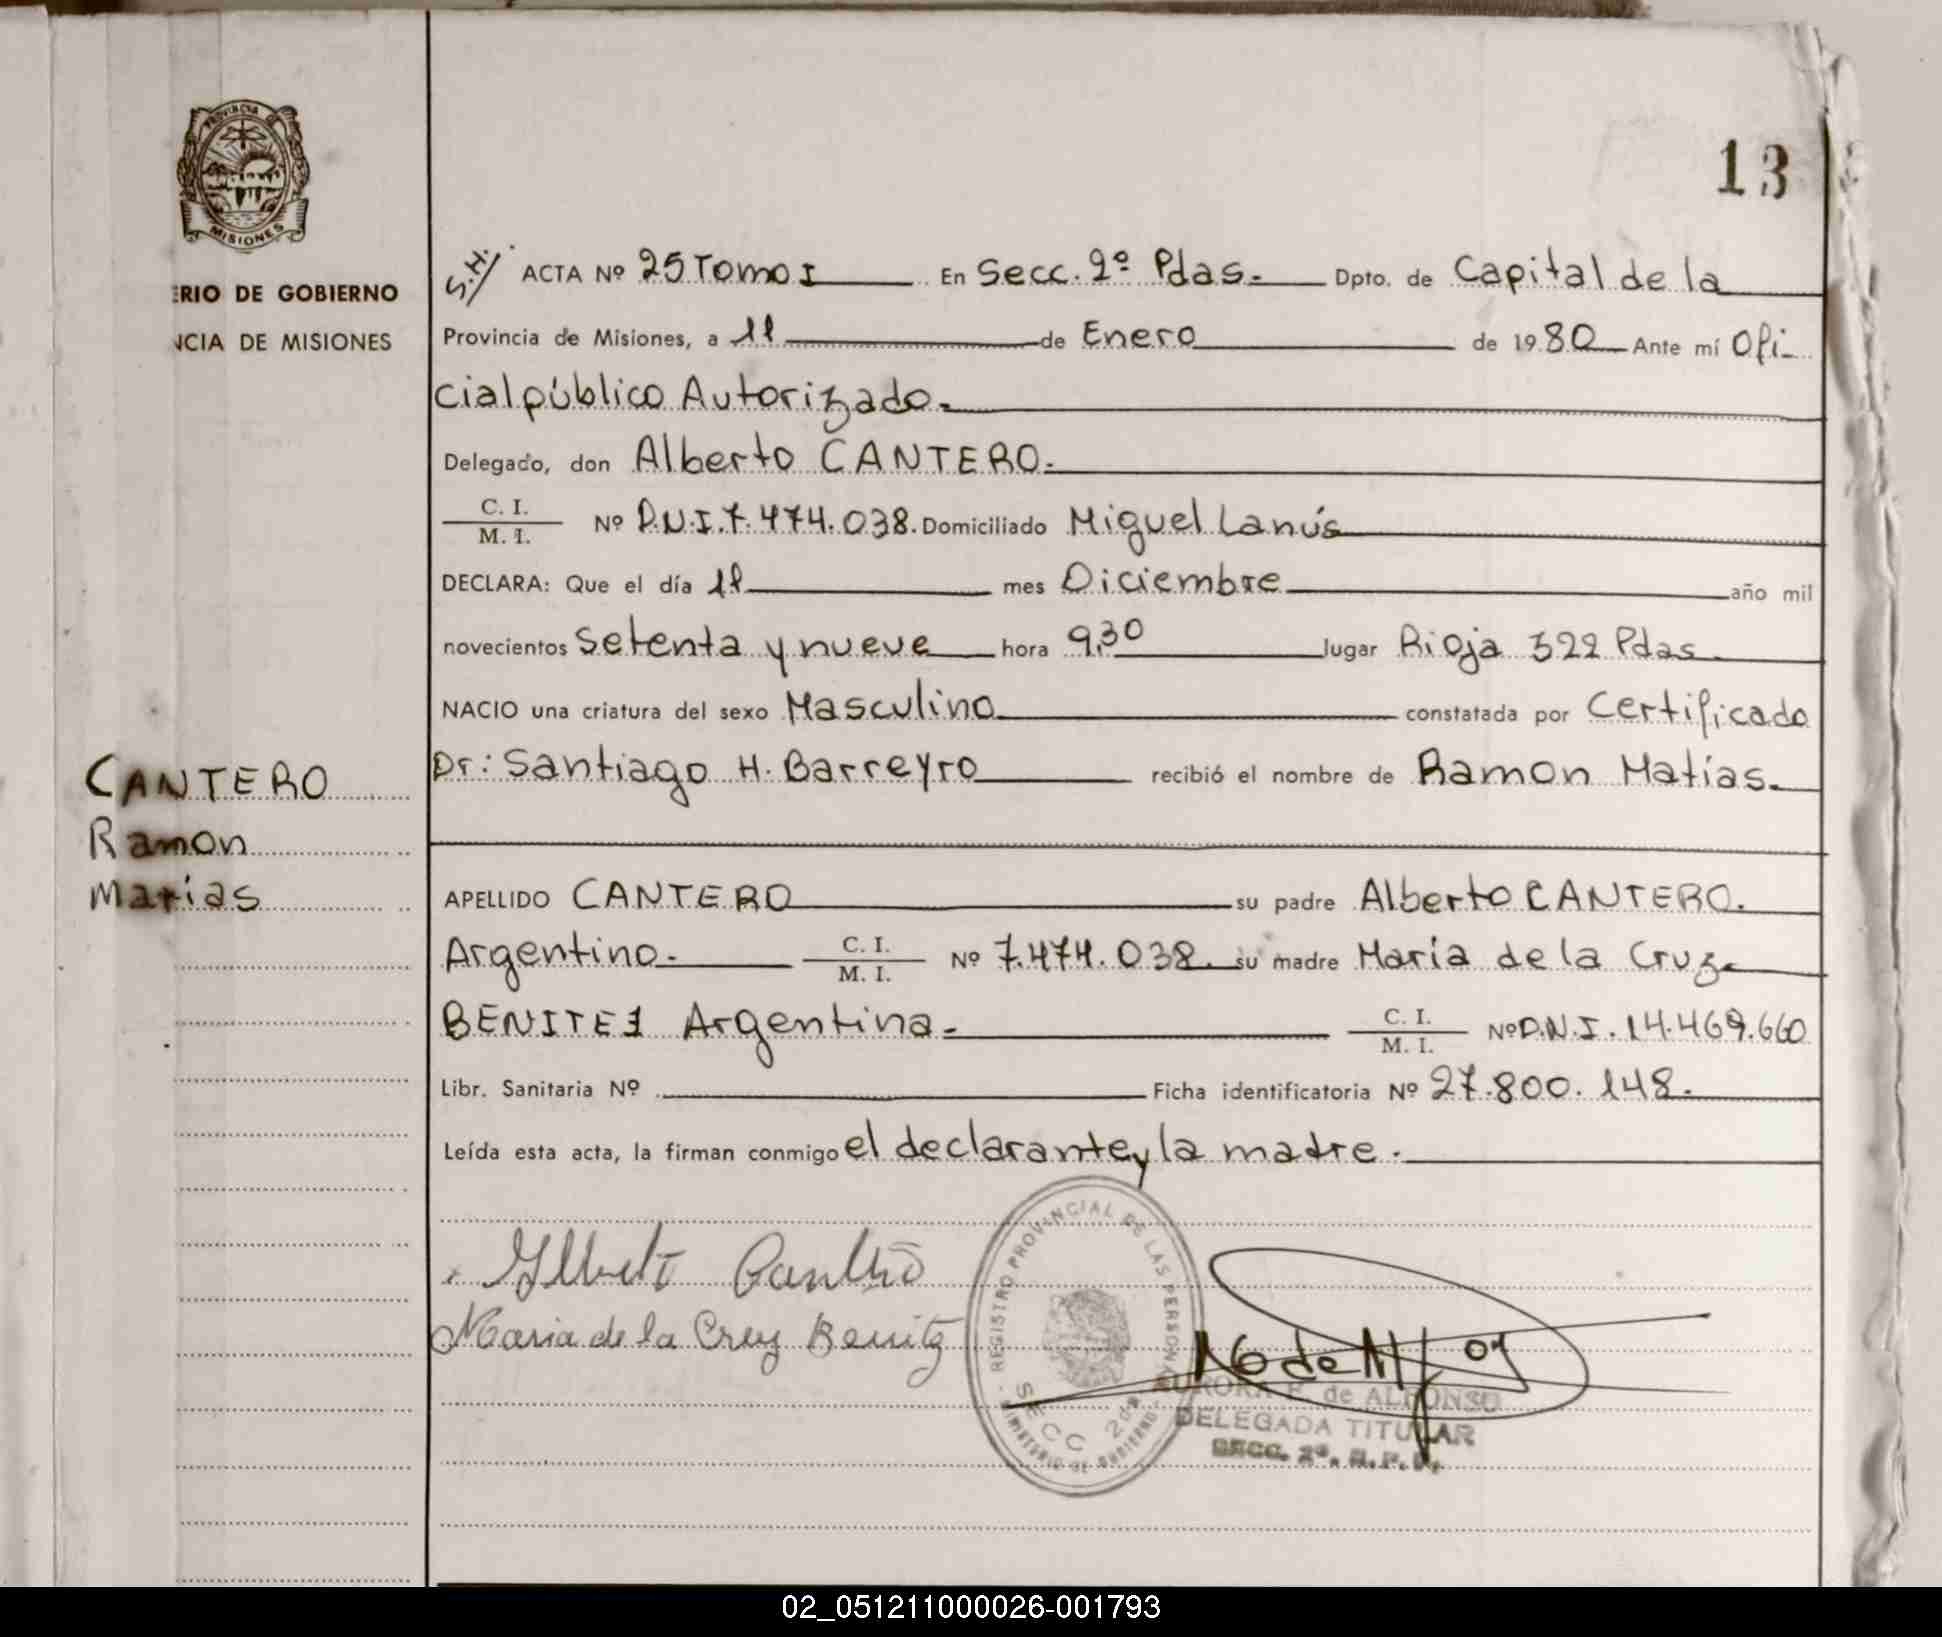 PROVINCIA DE
MISIONES
ERIO DE GOBIERNO
NCIA DE MISIONES
13
S.H./ ACTA Nº 25 Tomo I En Secc. 2º Pdas. Dpto. de Capital de la
Provincia de Misiones, a 11 de Enero de 1980 Ante mí Ofi
cial público Autorizado.
Delegado, don Alberto CANTERO.
C. I.
M. I. Nº D.N.I. 7.474.038. Domiciliado Miguel Lanús
DECLARA: Que el día 11 mes Diciembre año mil
novecientos setenta y nueve hora 9,30 lugar Rioja 322 Pdas.
NACIO una criatura del sexo Masculino constatada por Certificado
Dr: Santiago H. Barreyro recibió el nombre de Ramon Matías.
CANTERO
Ramon
Matías
APELLIDO CANTERO su padre Alberto CANTERO.
Argentino. C. I.
M. I. Nº 7.474.038. su madre María de la Cruz
BENITEZ Argentina. C. I.
M. I. Nº D.N.I. 14.469.660
Libr. Sanitaria Nº Ficha identificatoria Nº 27.800.148.
Leída esta acta, la firman conmigo el declarante y la madre.
Alberto Cantero
Maria de la Cruz Benitz
REGISTRO PROVINCIAL DE LAS PERSONAS
SECC 2da
MINISTERIO DE GOBIERNO
AURORA F. de ALFONSO
DELEGADA TITULAR
SECC. 2ª. R. P. P.
02_051211000026-001793